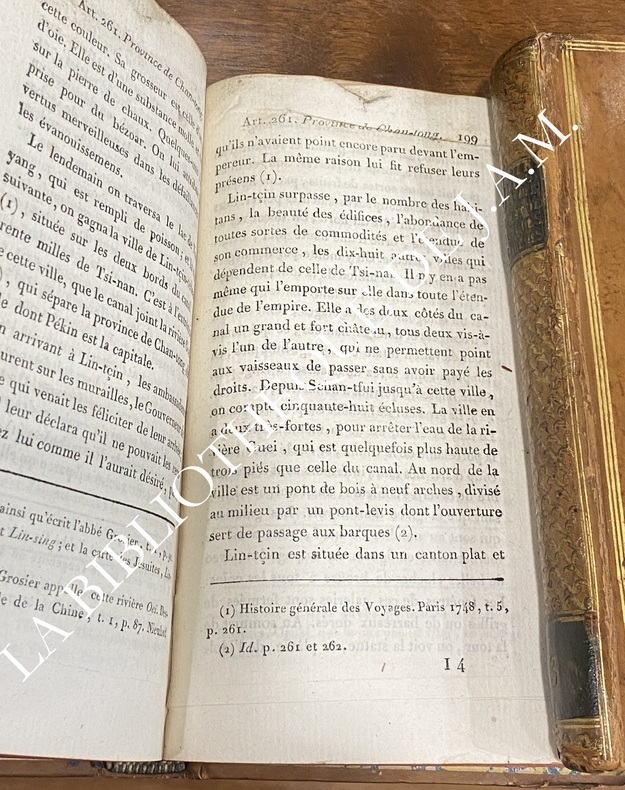 Art. 261. Province de Chan-tong.
cette couleur. Sa grosseur est celle
d'oie. Elle est d'une substance molle
sur la pierre de chaux. Quelques
prise pour du bézoar. On lui
vertus merveilleuses dans les
les évanouissemens.
Le lendemain on traversa le lac de
yang, qui est rempli de poisson; et
suivante, on gagna la ville de Lin-tçin
(1), située sur les deux bords du
rente milles de Tsi-nan. C'est à
e cette ville, que le canal joint la rivière
, qui sépare la province de Chan-tong
le dont Pékin est la capitale.
n arrivant à Lin-tçin, les
urent sur les murailles, le Gouverneur
e qui venait les féliciter de leur
leur déclara qu'il ne pouvait les
ez lui comme il l'aurait désiré,
ainsi qu'écrit l'abbé Grosier, t. 1, p.
t Lin-sing; et la carte des Jésuites,
Grosier appelle cette rivière Oei.
le de la Chine, t. 1, p. 87.
Art. 261. Province de Chan-tong. 199
qu'ils n'avaient point encore paru devant l'em-
pereur. La même raison lui fit refuser leurs
présens (1).
Lin-tçin surpasse, par le nombre des habi-
tans, la beauté des édifices, l'abondance de
toutes sortes de commodités et l'étendue de
son commerce, les dix-huit autres villes qui
dépendent de celle de Tsi-nan. Il n'y en a pas
même qui l'emporte sur elle dans toute l'éten-
due de l'empire. Elle a des deux côtés du ca-
nal un grand et fort château, tous deux vis-à-
vis l'un de l'autre, qui ne permettent point
aux vaisseaux de passer sans avoir payé les
droits. Depuis Schan-tsui jusqu'à cette ville,
on compte cinquante-huit écluses. La ville en
a deux très-fortes, pour arrêter l'eau de la ri-
vière Guei, qui est quelquefois plus haute de
trois piés que celle du canal. Au nord de la
ville est un pont de bois à neuf arches, divisé
au milieu par un pont-levis dont l'ouverture
sert de passage aux barques (2).
Lin-tçin est située dans un canton plat et
(1) Histoire générale des Voyages. Paris 1748, t. 5,
p. 261.
(2) Id. p. 261 et 262.
I 4
LA BIBLIOTHEQUE DE J.A.M.